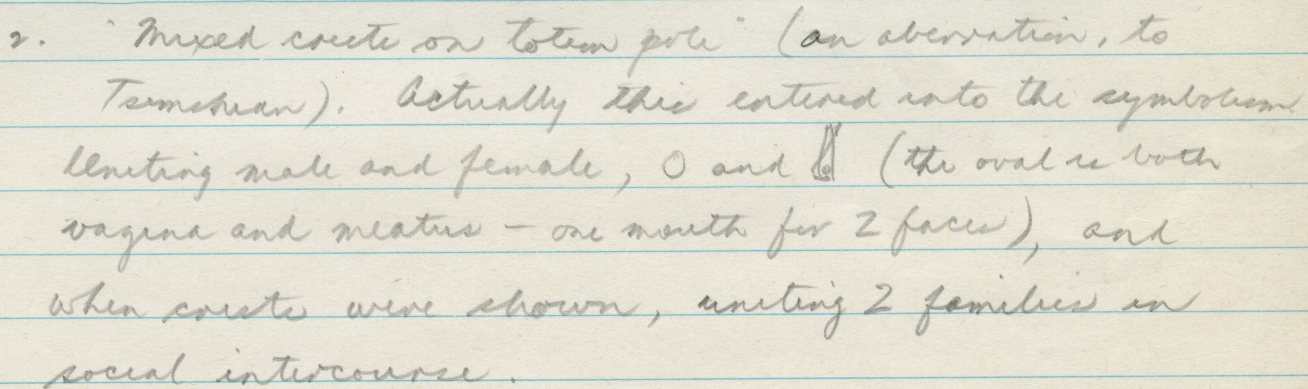 2. "Mixed crests on totem pole" (an aberration, to
Tsimshian). Actually this entered into the symbolism
Uniting male and female, O and (the oval is both
vagina and meatus - one mouth for 2 faces), and
when crests were shown, uniting 2 families in
social intercourse.